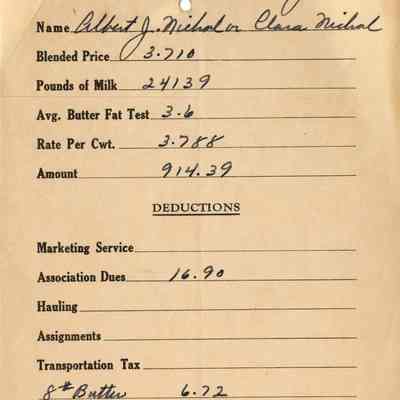 Name Albert J. Nichol or Clara Nichol
Blended Price 3.710
Pounds of Milk 24139
Avg. Butter Fat Test 3.6
Rate Per Cwt. 3.788
Amount 914.39
DEDUCTIONS
Marketing Service
Association Dues 16.90
Hauling
Assignments
Transportation Tax
8# Butter 6.72